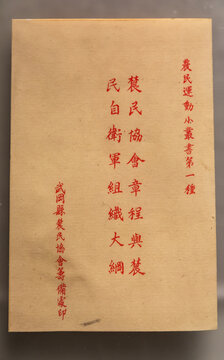 農民運動小叢書第一種
農民協會章程與農
民自衛軍組織大綱
武岡縣農民協會籌備處印